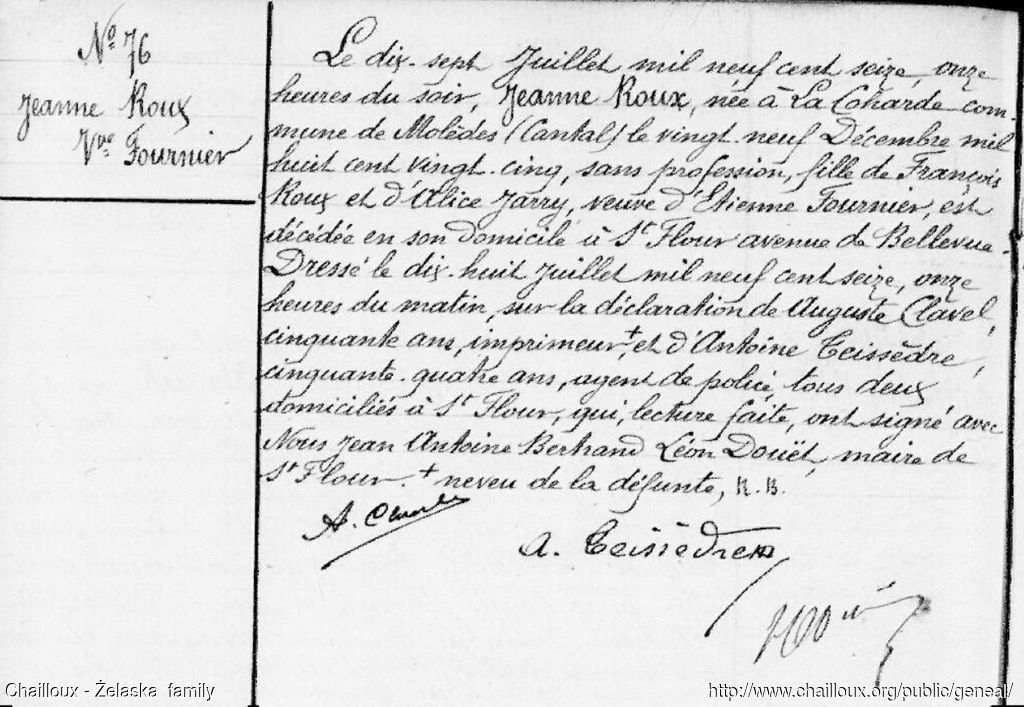 N° 76
Jeanne Roux
Vve Fournier
Le dix-sept Juillet mil neuf cent seize, onze
heures du soir, Jeanne Roux, née à La Coharde com-
mune de Molèdes (Cantal) le vingt-neuf Décembre mil
huit cent vingt-cinq, sans profession, fille de François
Roux et d'Alice Jarry, veuve d'Etienne Fournier, est
décédée en son domicile à St Flour avenue de Bellevue.
Dressé le dix-huit Juillet mil neuf cent seize, onze
heures du matin, sur la déclaration de Auguste Clavel,
cinquante ans, imprimeur, + et d'Antoine Teissèdre,
cinquante-quatre ans, agent de police, tous deux
domiciliés à St Flour, qui, lecture faite, ont signé avec
Nous Jean Antoine Bertrand Léon Douët, maire de
St Flour. + neveu de la défunte, R. B.
A.
A. Teissèdre
Chailloux - Żelaska family
http://www.chailloux.org/public/geneal/